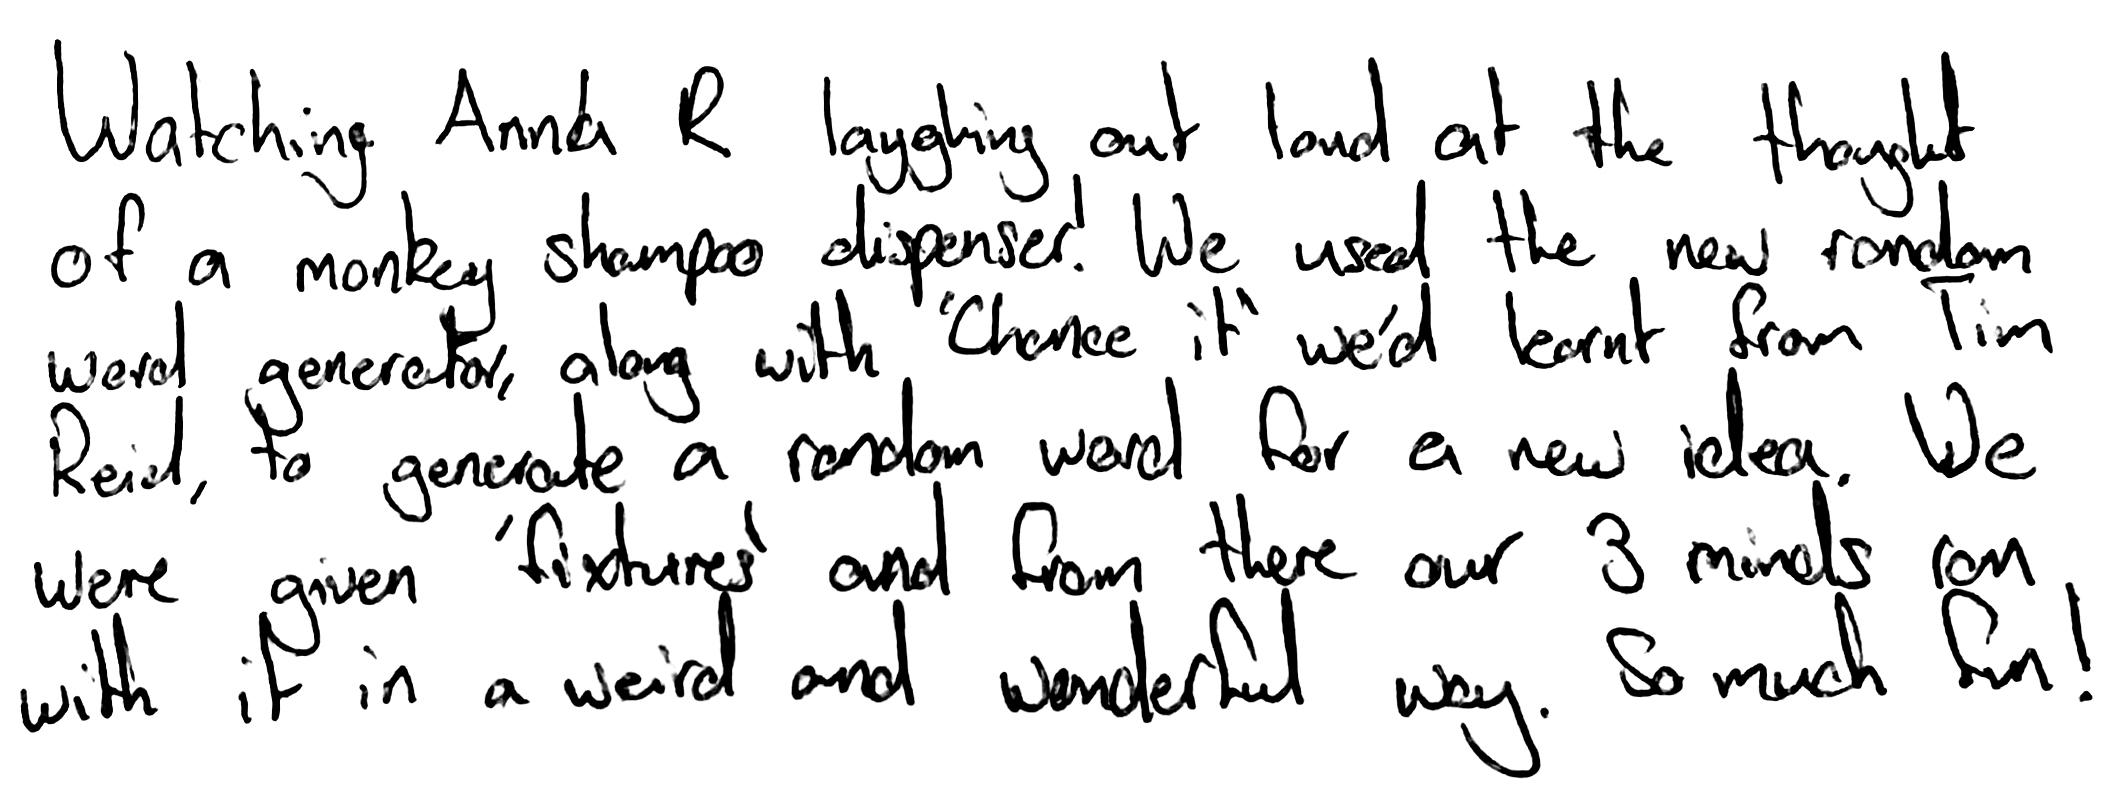 Watching Anna R laughing out loud at the thought
of a monkey shampoo dispenser! We used the new random
word generator, along with 'Chance it' we'd learnt from Tim
Reid, to generate a random word for a new idea. We
were given 'fixtures' and from there our 3 minds ran
with it in a weird and wonderful way. So much fun!